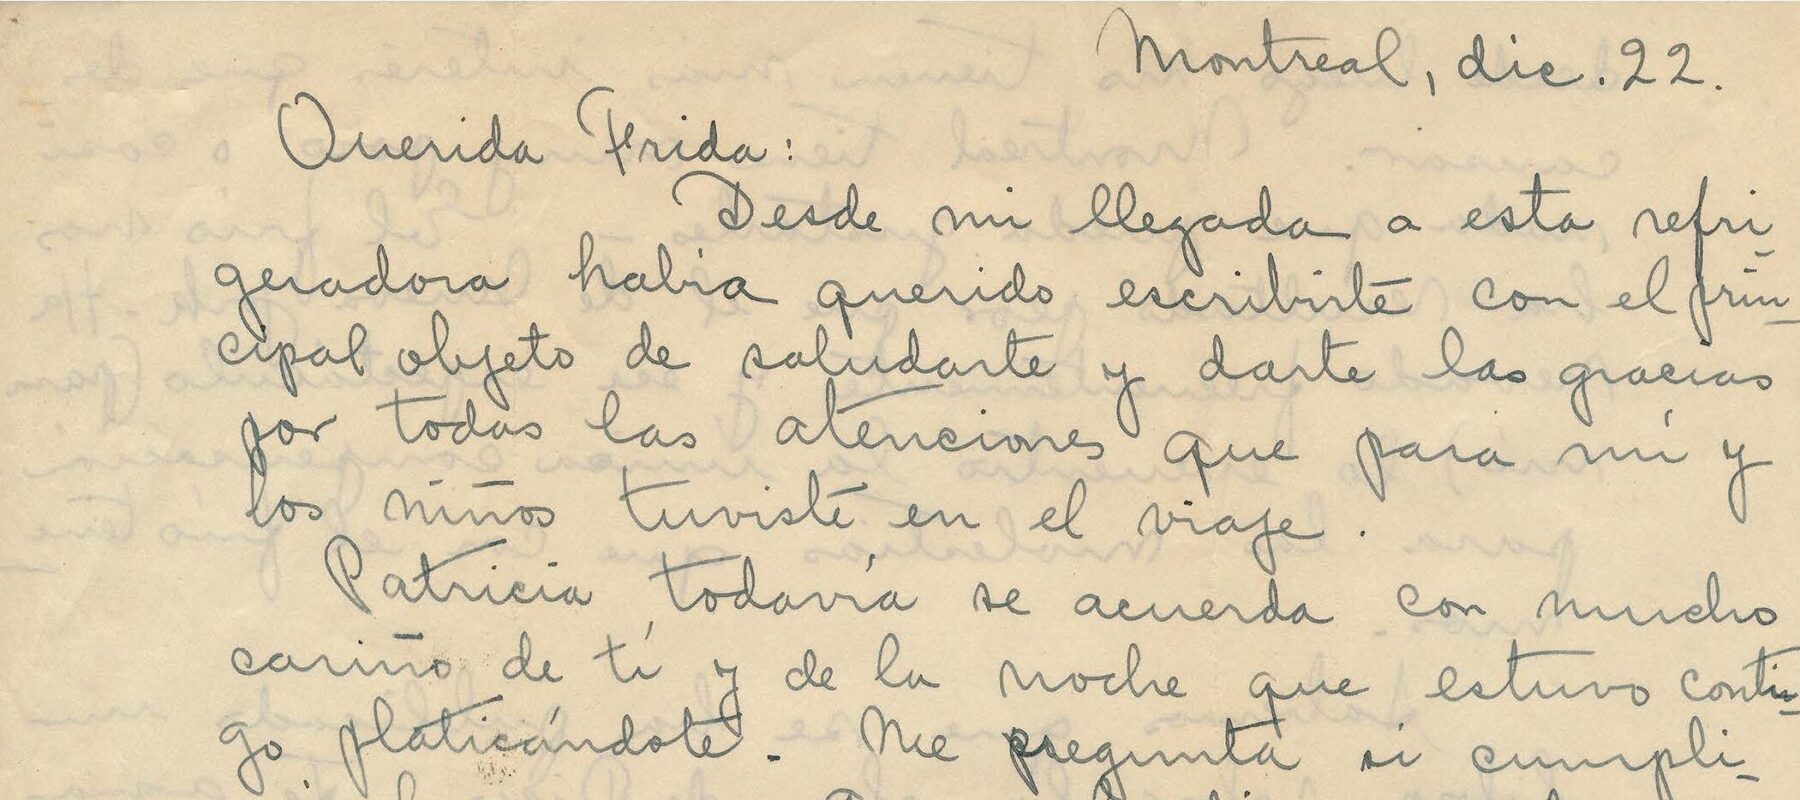 Montreal, dic. 22.
Querida Frida:
Desde mi llegada a esta refri-
geradora había querido escribirte con el prin-
cipal objeto de saludarte y darte las gracias
por todas las atenciones que para mí y
los niños tuviste en el viaje.
Patricia todavía se acuerda con mucho
cariño de tí y de la noche que estuvo conti-
go platicándote. Me pregunta si cumpli-